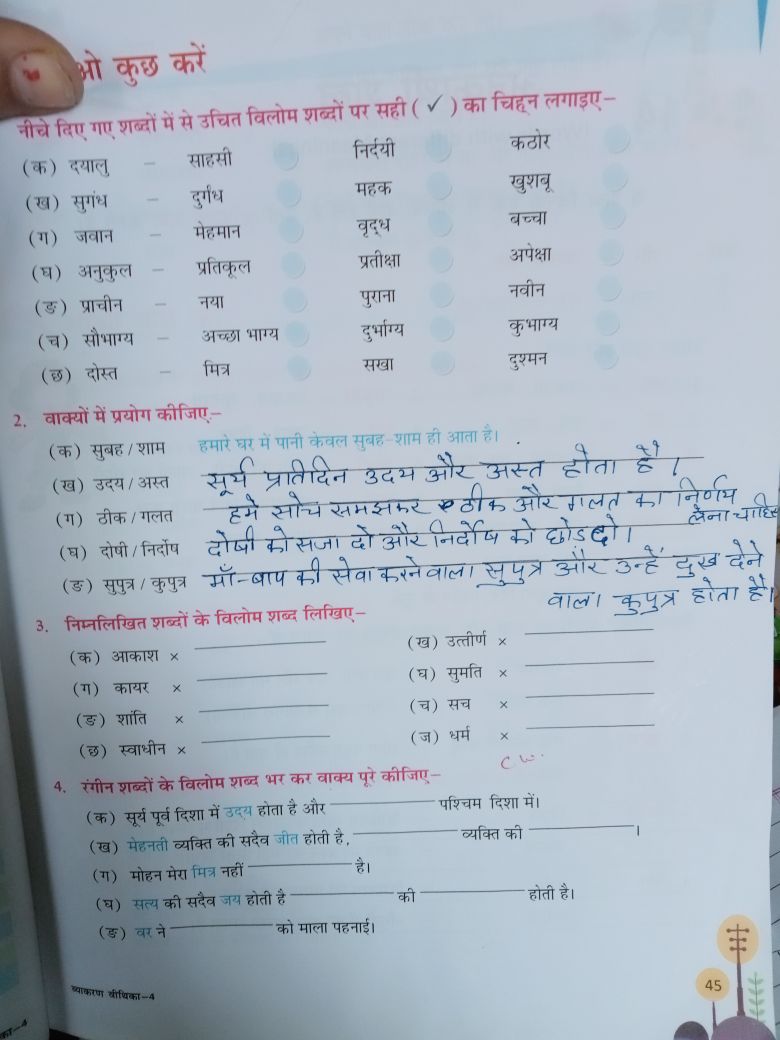 ओ कुछ करें
नीचे दिए गए शब्दों में से उचित विलोम शब्दों पर सही ( ✓ ) का चिह्न लगाइए–
(क) दयालु – साहसी निर्दयी कठोर
(ख) सुगंध – दुर्गंध महक खुशबू
(ग) जवान – मेहमान वृद्ध बच्चा
(घ) अनुकुल – प्रतिकूल प्रतीक्षा अपेक्षा
(ङ) प्राचीन – नया पुराना नवीन
(च) सौभाग्य – अच्छा भाग्य दुर्भाग्य कुभाग्य
(छ) दोस्त – मित्र सखा दुश्मन
2. वाक्यों में प्रयोग कीजिए–
(क) सुबह / शाम हमारे घर में पानी केवल सुबह-शाम ही आता है।
(ख) उदय / अस्त सूर्य प्रातिदिन उदय और अस्त होता है।
(ग) ठीक / गलत हमे सोच समझकर ठीक और गलत का निर्णय
लेना चाहिए
(घ) दोषी / निर्दोष दोषी को सजा दो और निर्दोष को छोड दो।
(ङ) सुपुत्र / कुपुत्र माँ-बाप की सेवा करने वाला सुपुत्र और उन्हें दुख देने
वाला कुपुत्र होता है।
3. निम्नलिखित शब्दों के विलोम शब्द लिखिए–
(क) आकाश × (ख) उत्तीर्ण ×
(ग) कायर × (घ) सुमति ×
(ङ) शांति × (च) सच ×
(छ) स्वाधीन × (ज) धर्म ×
C.W.
4. रंगीन शब्दों के विलोम शब्द भर कर वाक्य पूरे कीजिए–
(क) सूर्य पूर्व दिशा में उदय होता है और पश्चिम दिशा में।
(ख) मेहनती व्यक्ति की सदैव जीत होती है, व्यक्ति की ।
(ग) मोहन मेरा मित्र नहीं है।
(घ) सत्य की सदैव जय होती है की होती है।
(ङ) वर ने को माला पहनाई।
व्याकरण वीथिका–4
45
का–4